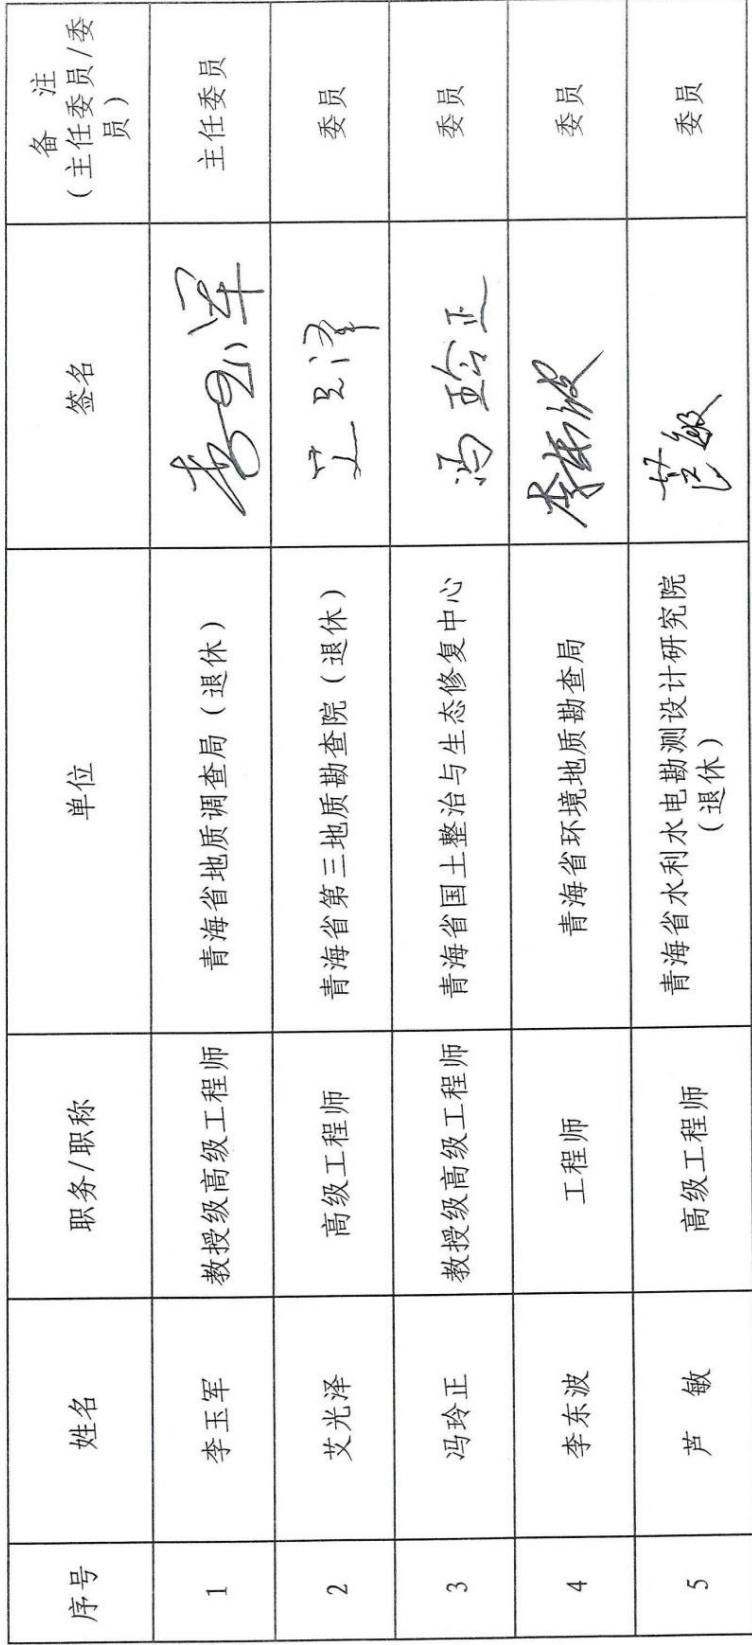 序号 姓名 职务/职称 单位 签名 备 注
(主任委员/委
员)
1 李玉军 教授级高级工程师 青海省地质调查局(退休) 李玉军 主任委员
2 艾光泽 高级工程师 青海省第三地质勘查院(退休) 艾光泽 委员
3 冯玲正 教授级高级工程师 青海省国土整治与生态修复中心 冯玲正 委员
4 李东波 工程师 青海省环境地质勘查局 李东波 委员
5 芦 敏 高级工程师 青海省水利水电勘测设计研究院
(退休) 芦敏 委员